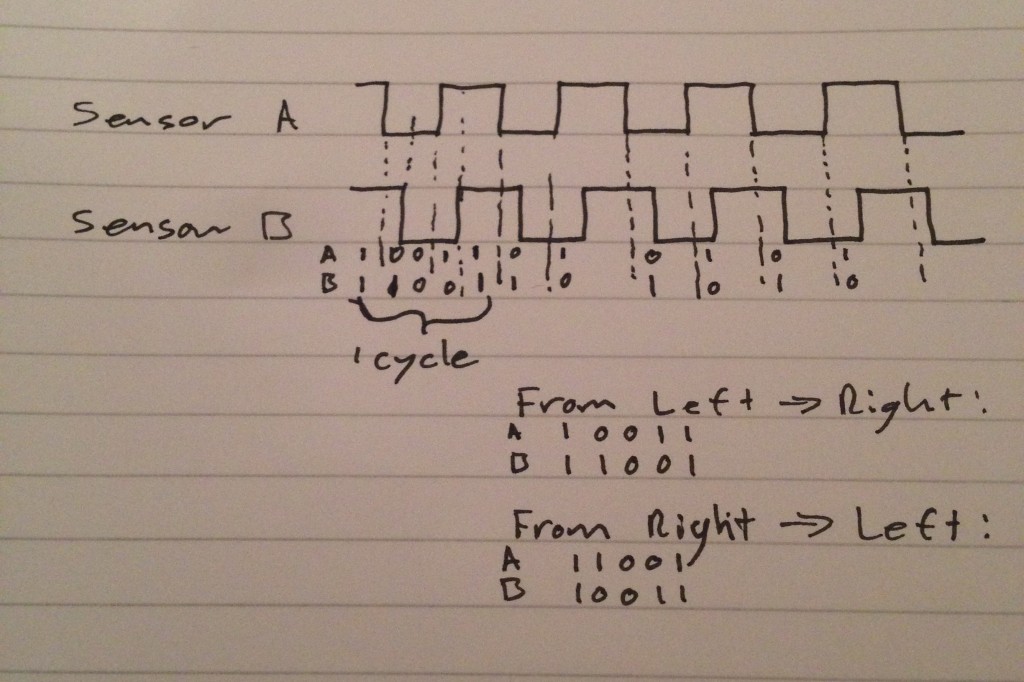 Sensor A
Sensor B
A 1 0 0 1 1 0 1 0 1 0 1
B 1 1 0 0 1 1 0 1 0 1 0
1 cycle
From Left → Right:
A 1 0 0 1 1
B 1 1 0 0 1
From Right → Left:
A 1 1 0 0 1
B 1 0 0 1 1